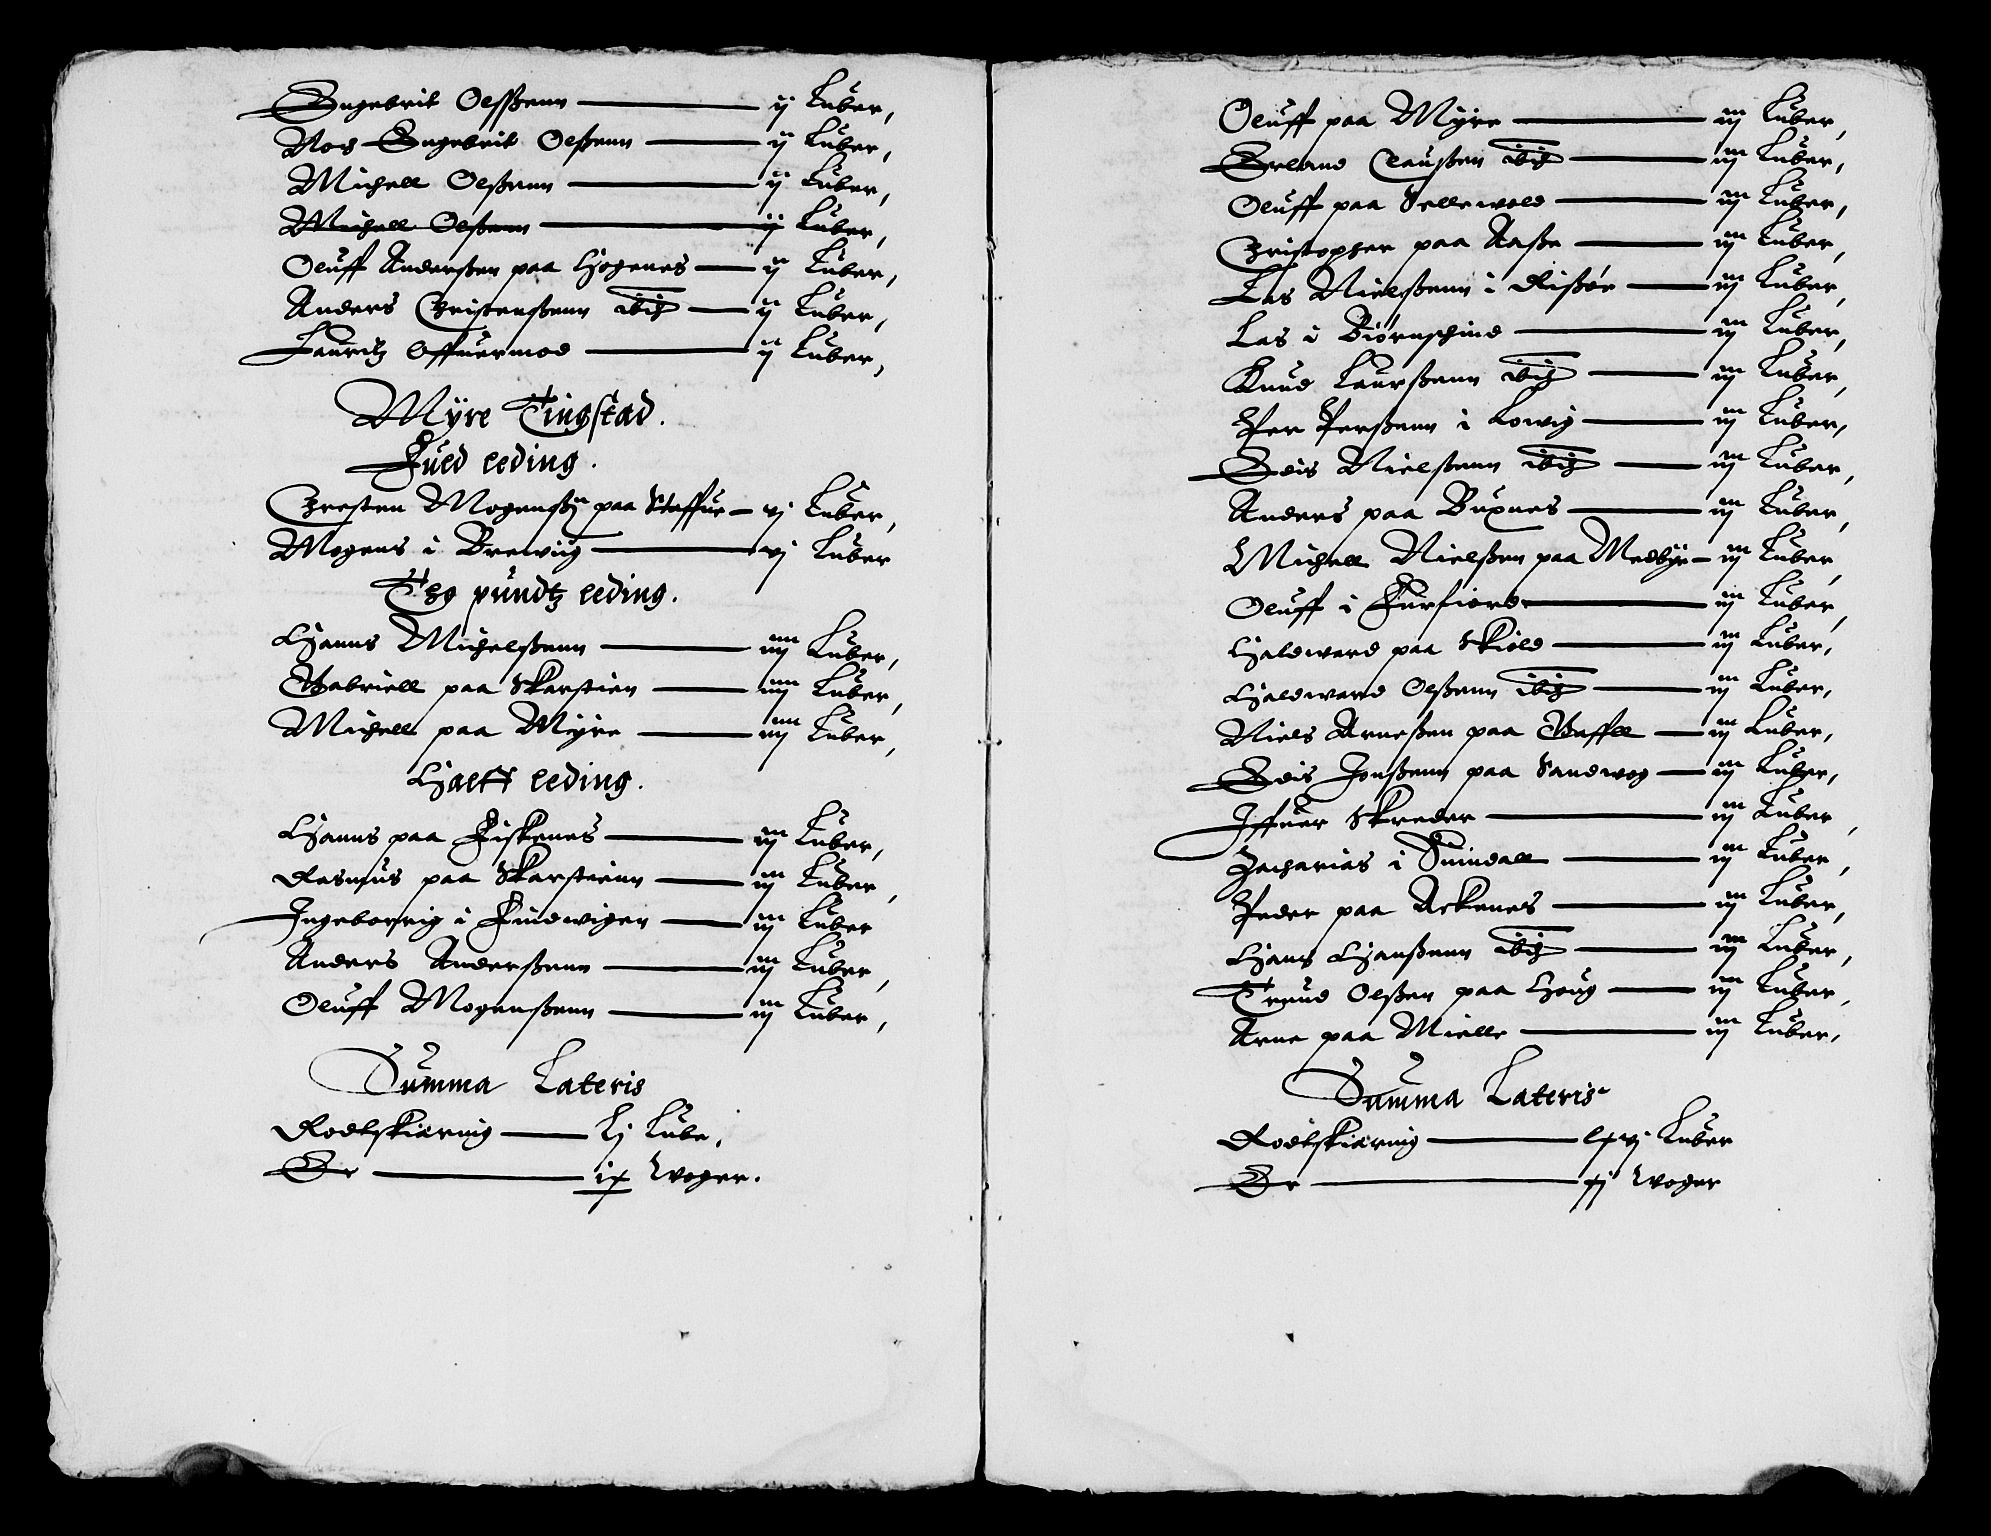 Engebrit Olsßenn ——— ij Luber,
Noch Engebrit Olßenn ——— ij Luber,
Michell Olßenn ——— ij Luber,
Michell Olßenn ——— ij Luber,
Oluff Anderßen paa Hogenes — ij Luber,
Anders Christenßenn ibid — ij Luber,
Lauritz Offuermod ——— ij Luber,
Myre Tingstad.
Fuld leding.
Chresten Mogensßn paa Steffue — vj Luber,
Mogens i Brewiig ——— vj Luber
Tho pundtz leding.
Hanns Michelßenn ——— iiij Luber,
Gabriell paa Skarstien ——— iiij Luber,
Michell paa Myre ——— iiij Luber,
Halff leding.
Hanns paa Fiskenes ——— iij Luber,
Rasmus paa Skarstienn ——— iij Luber,
Ingeborrig i Findwigen ——— iij Luber
Anders Anderßenn ——— iij Luber,
Oluff Mogensßenn ——— iij Luber,
Summa Lateris
Rodtskiæring ——— Lj Lube,
Er ——— ix Woger.
Oluff paa Myre ——— iij Luber,
Erland Claußen ibid ——— iij Luber,
Oluff paa Sellewold ——— iij Luber,
Christopher paa Aaße ——— iij Luber,
Las Nielsßenn i Rißör ——— iij Luber,
Las i Biörnschind ——— iij Luber,
Knud Laursßenn ibid ——— iij Luber,
Per Persßenn i Lowig ——— iij Luber,
Edis Nielsßenn ibid ——— iij Luber,
Anders paa Buxnes ——— iij Luber,
Michell Nielsßen paa Medbye — iij Luber,
Oluff i Furfiord ——— iij Luber,
Haldward paa Skiold ——— iij Luber,
Haldward Olßenn ibid ——— iij Luber,
Niels Arneßen paa Gaffll — iij Luber,
Edis Jonßenn paa Sandwog — iij Luber,
Iffuer Skreder ——— iij Luber,
Zacharias i Suindall ——— iij Luber,
Peder paa Askenes ——— iij Luber,
Hans Hansßenn ibid ——— iij Luber,
Trund Olßen paa Houg ——— iij Luber,
Arne paa Mielle ——— iij Luber,
Summa Lateris
Rodtskiæring ——— lxvj Luber
Er ——— xj Woger